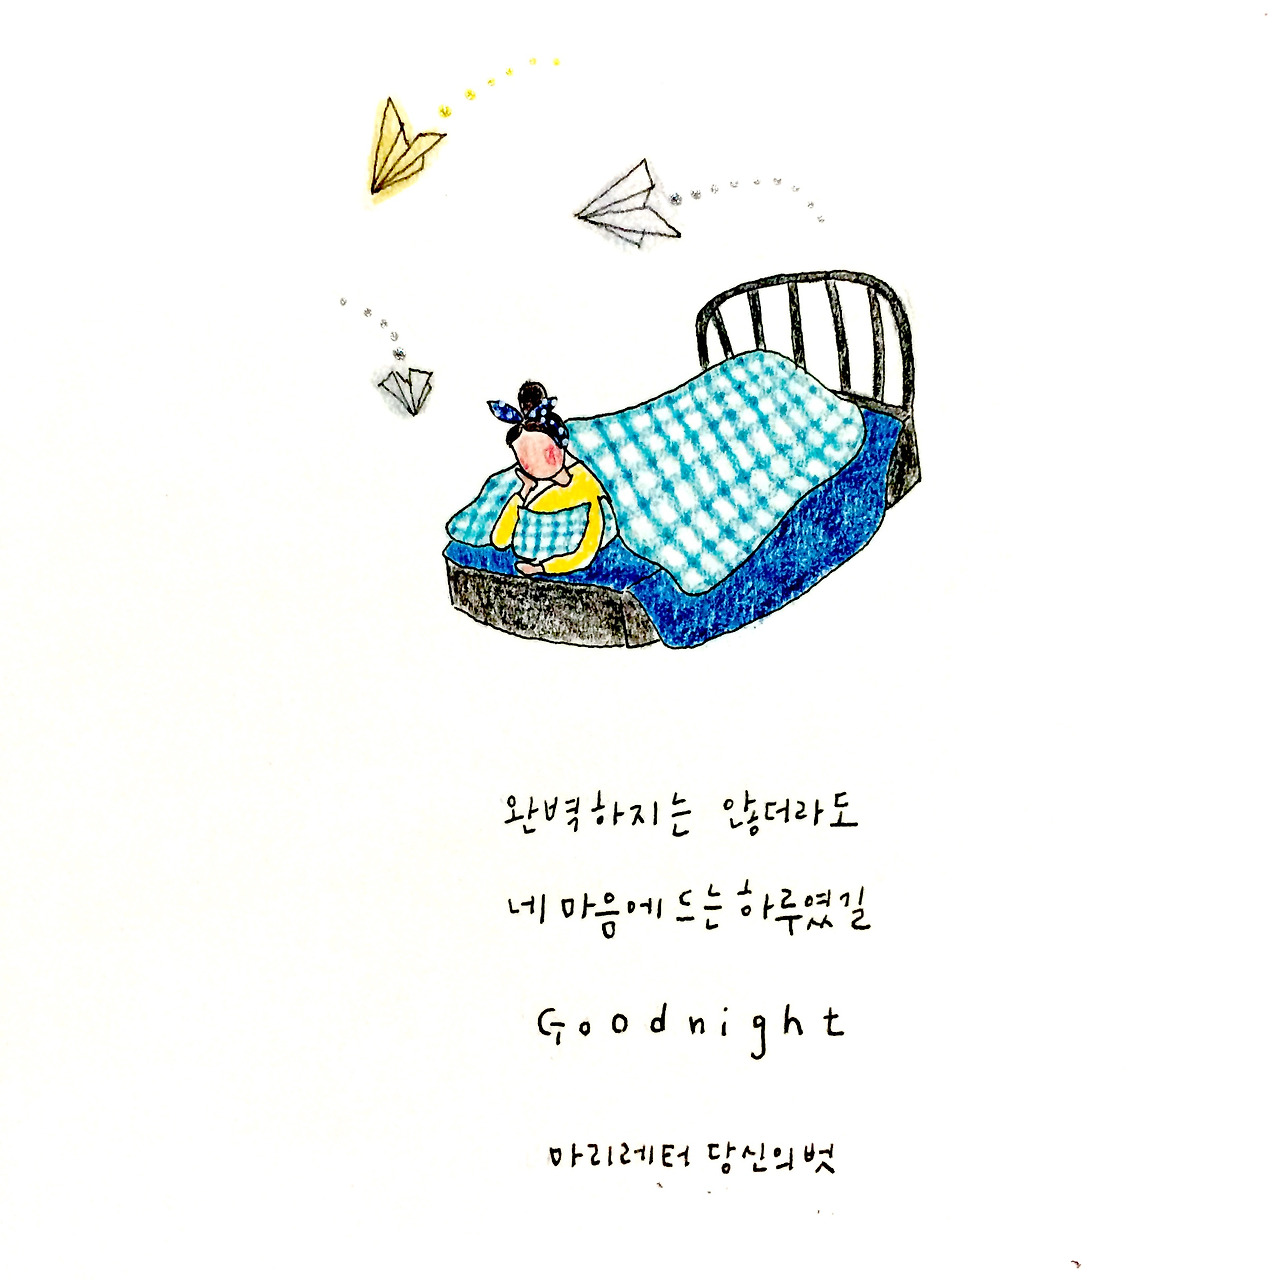 완벽하지는 않더라도
네 마음에 드는 하루였길
Goodnight
마리레터 당신의 벗